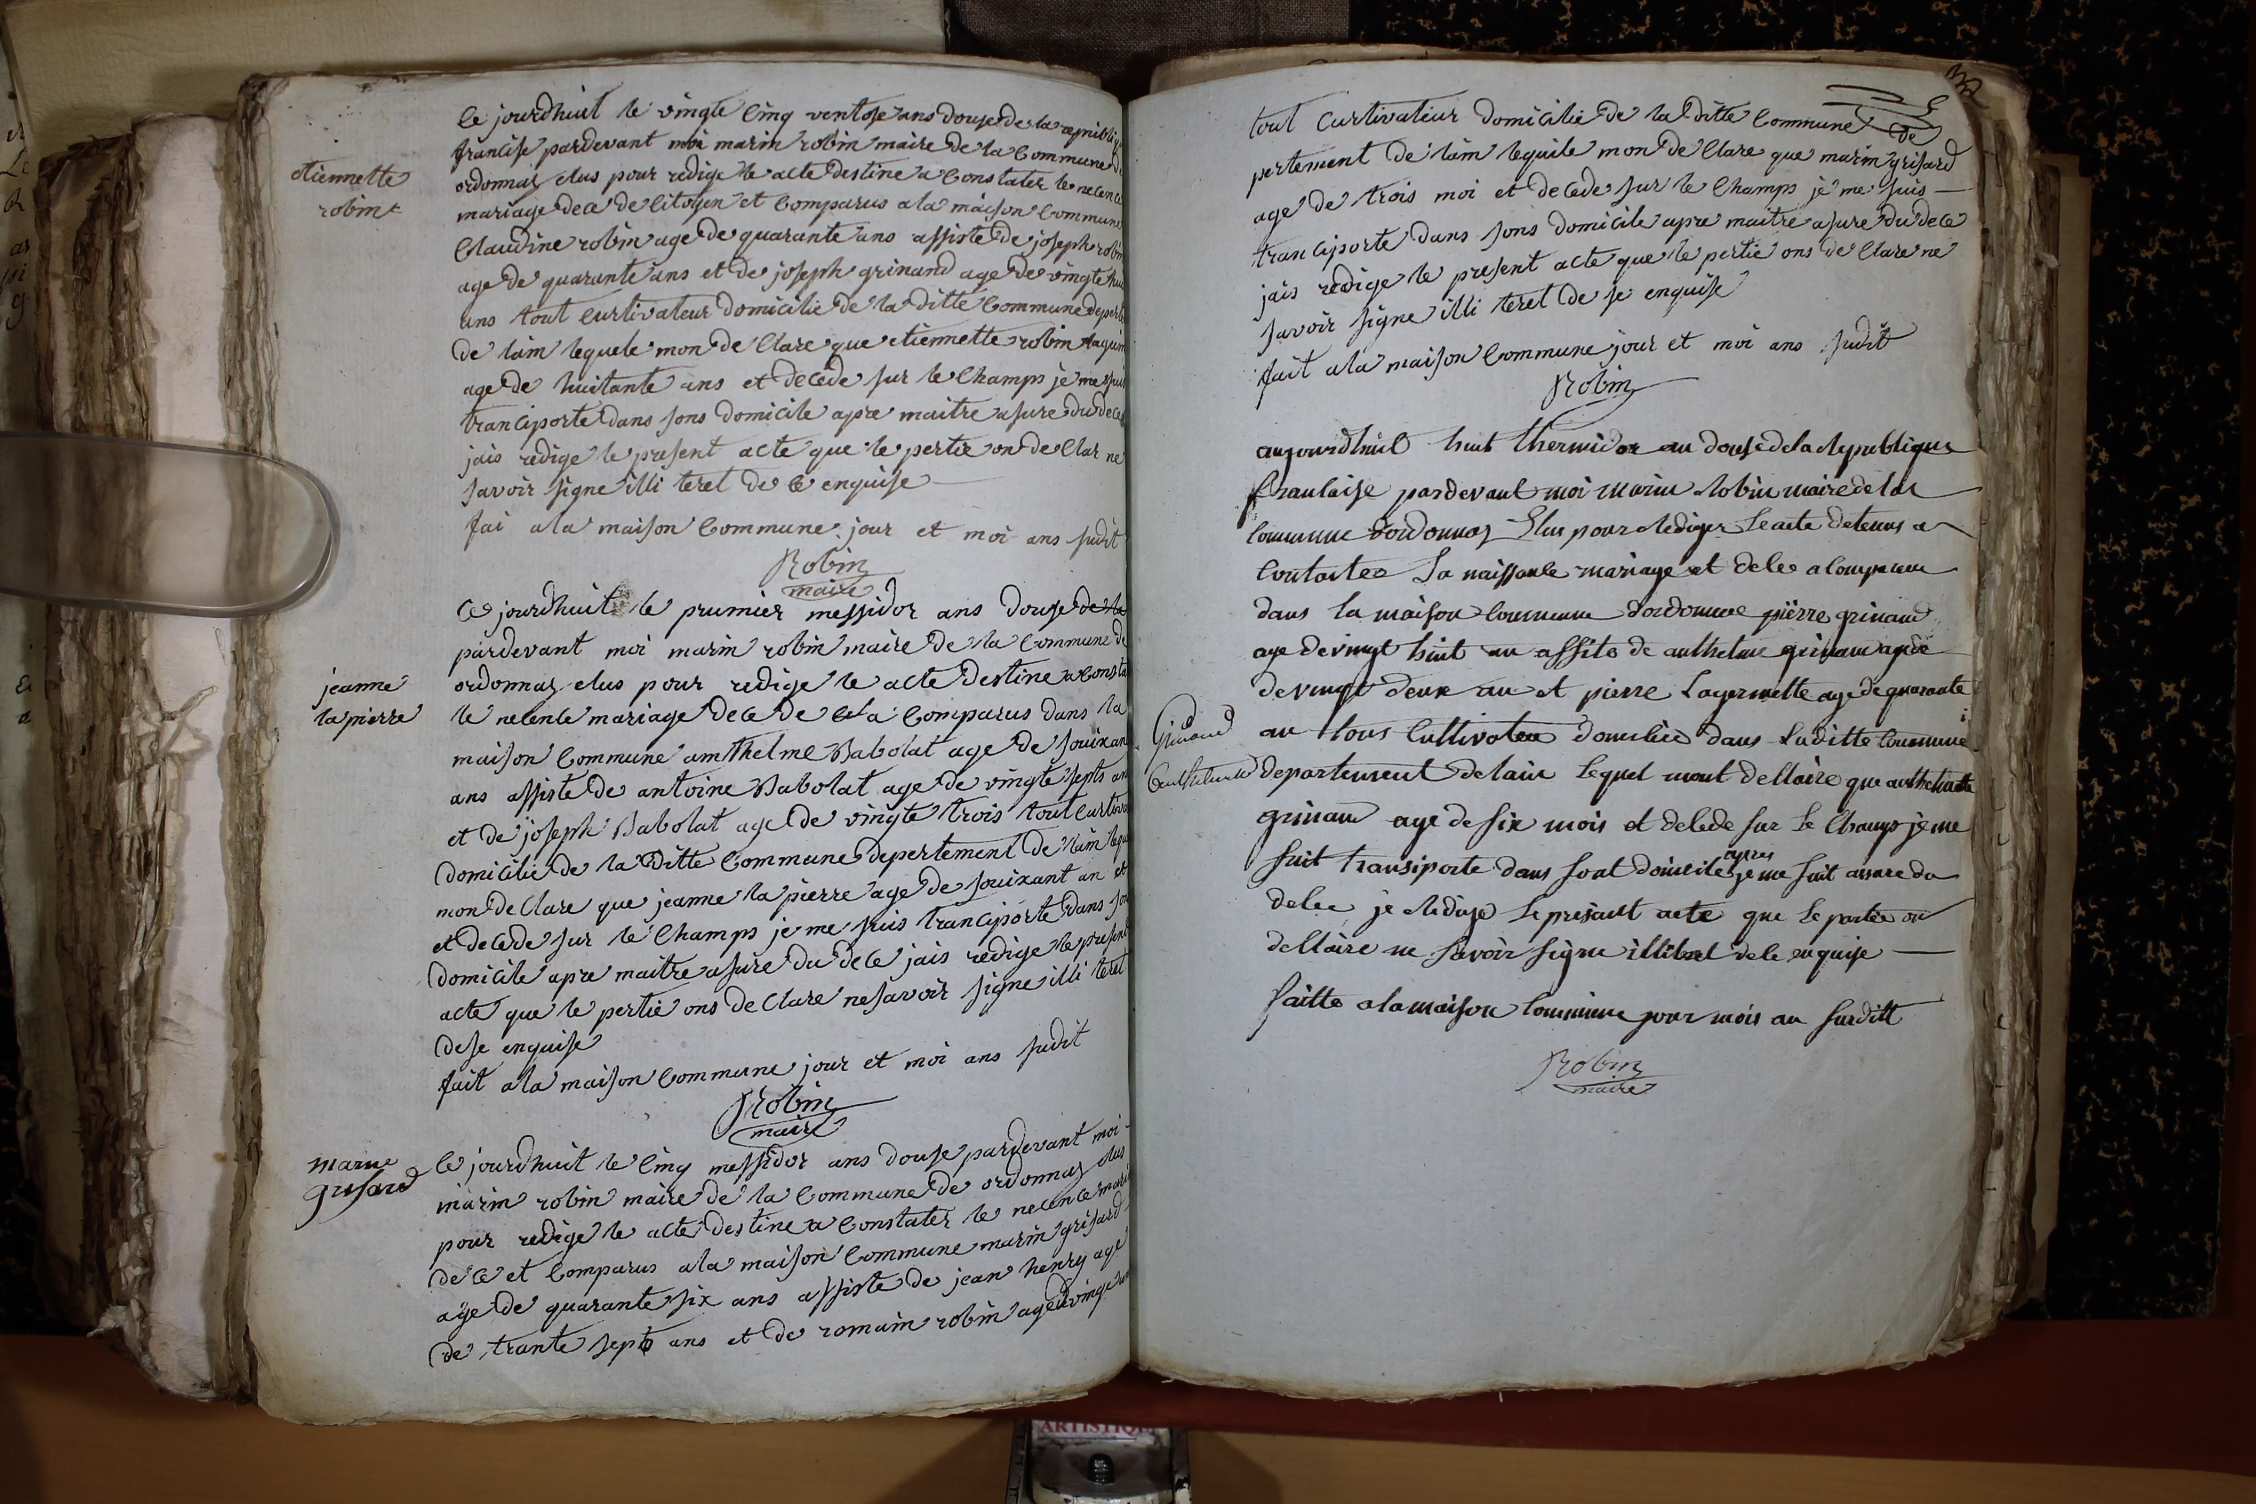 etiennette
robin
Ce jourdhuit le vingte cinq ventose ans douse de la republiq
francise pardevant moi marin robin maire de la commune de
ordonnaz elus pour redige le acte destine a constater le necence
mariage dece de citoyen et comparus a la maison commune
Claudine robin age de quarante ans assiste de joseph robin
age de quarante ans et de joseph grinand age de vingte hui
ans tout curtivateur domicilie de la ditte commune depert
de lain lequele mon de clare que etiennette robin
age de huitante ans et decede sur le champs je me suis
tranciporte dans sons domicile apre maitre asure du dece
jais redige le present acte que le pertie on de clar ne
savoir signe illi teret de ce enquise
fai a la maison commune jour et moi ans sudit
Robin
maire
jeanne
la pierre
Ce jourdhuit le prumier messidor ans douse de la
pardevant moi marin robin maire de la commune de
ordonnaz elus pour redige le acte destine a consta
le necence mariage dece de cela comparus dans la
maison commune amthelme Babolat age de souixan
ans assiste de antoine Babolat age de vingte septs an
et de joseph Babolat age de vingte trois tout curtiva
domicilie de la ditte commune depertement de lain lequ
mon de clare que jeanne la pierre age de souixant an et
et decede sur le champs je me suis tranciporte dans son
domicile apre maitre asure du dece jais redige le present
acte que le pertie ons de clare ne savoir signe illi teret
de se enquise
fait a la maison commune jour et moi ans sudit
Robin
maire
marin
grisard
Ce jourdhuit le cinq messidor ans douse pardevant moi
marin robin maire de la commune de ordonnaz elus
pour redige le acte destine a constater le necence mari
dece et comparus a la maison commune marin grisard
age de quarante six ans assiste de jean henry age
de trante septs ans et de romain robin age de vingt
32
tout curtivateur domicilie de la ditte commune de
pertement de lain lequile mon de clare que marin grisard
age de trois moi et decede sur le champs je me suis
tranciporte dans sons domicile apre maitre asure du dece
jais redige le present acte que le pertie ons de clare ne
savoir signe illi teret de se enquise
fait a la maison commune jour et moi ans sudit
Robin
aujourdhuit huit thermidor an douse de la republique
francaise pardevant moi marin robin maire de la
commune dordonnaz Elus pour rediger le acte detenus a
contater la naissance mariage et dece a comparu
dans la maison commune dordonnaz pierre grinand
age de vingt huit an assite de anthelme grinand age
de vingt deux an et pierre Laguernette age de quarante
Grinand
an tous cultivateur domcilie dans la ditte commune
departement de lain lequel mont dellaire que
grinand age de six mois et decede sur le champs je me
suit transiporte dans sont domicile apres je me suit assure du
dece je redige le present acte que le partie on
dellaire ne savoir signe illiteret de ce enquise
faitte a la maison commune jour mois an surditt
Robin
maire